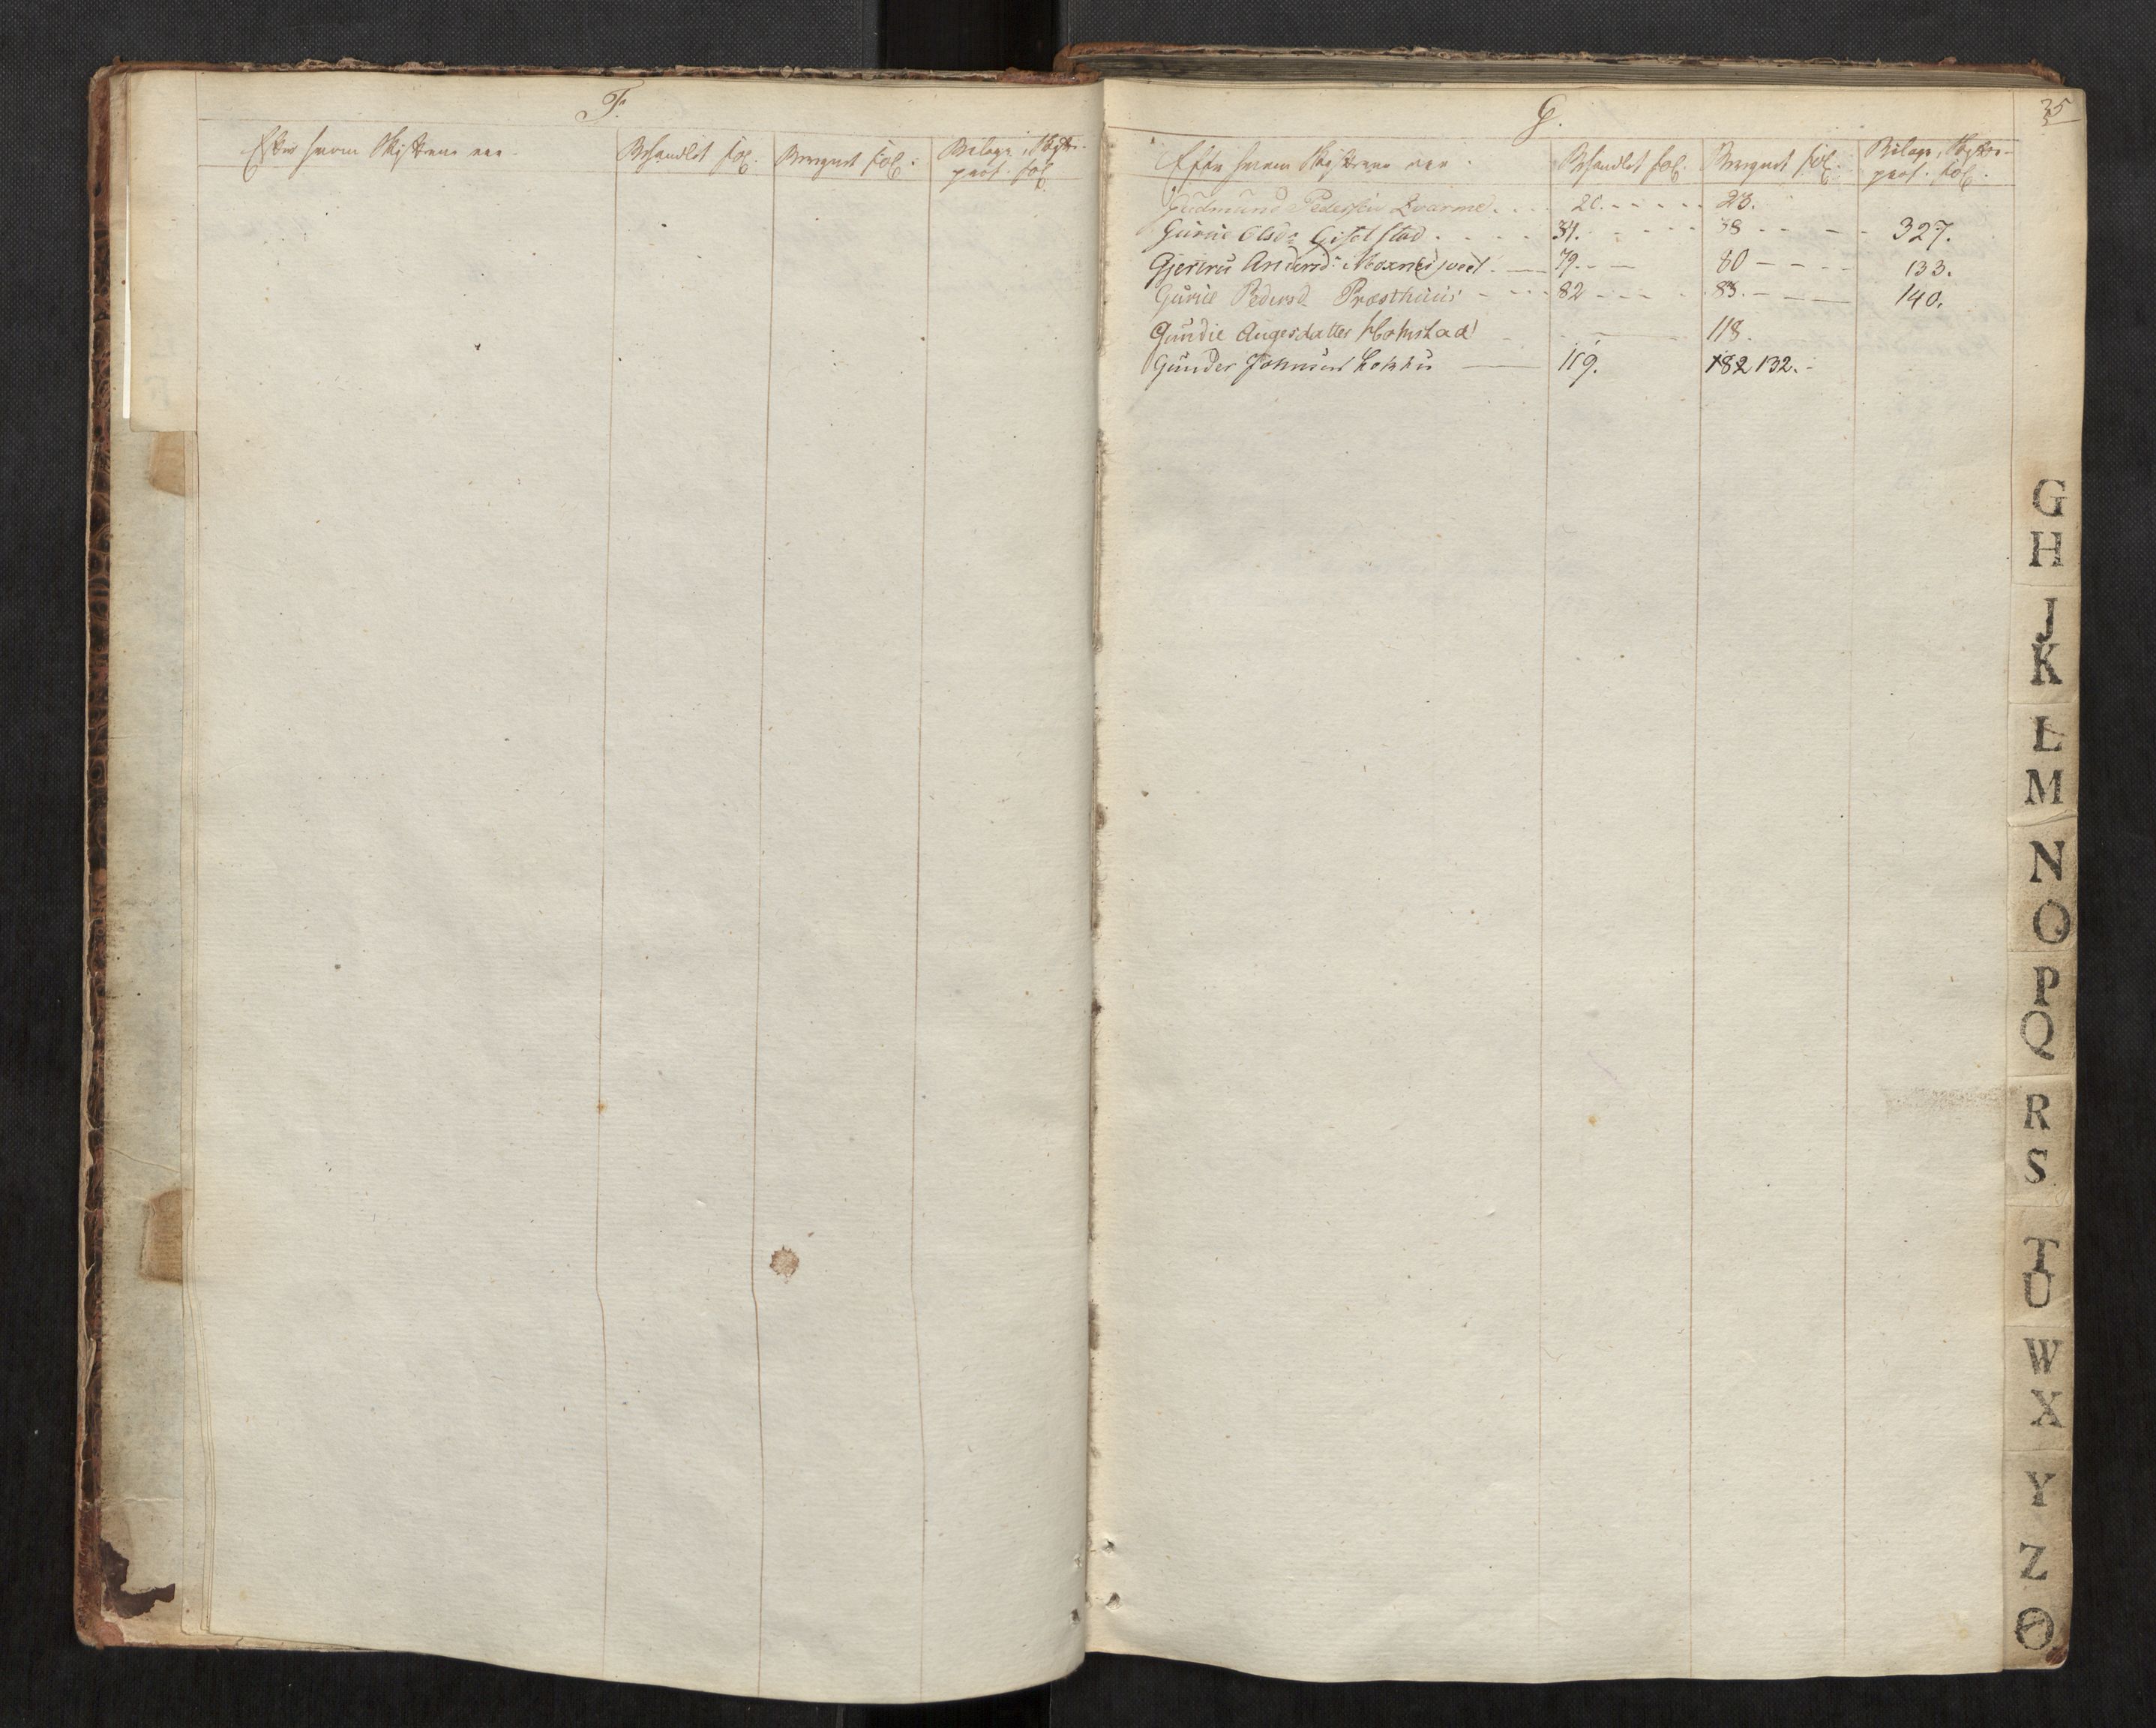 F.
Efter hvem Skiftene ere
Behandlet fol.
Beregnet fol.
Bilage, Skifte-
prot. fol.
G.
35
Efter hvem Skiftene ere
Behandlet fol.
Beregnet fol.
Bilage, Skifte-
prot. fol.
Gudmund Pedersen Qvarme. 20. 23.
Gurue Olsdr. Gifstad 31. 38 327.
Gjertru Andersd: Moxnes 79. 80 133.
Gurue Pedersd. Præsthuus 82 83. 140.
Gundie Aagesdatter Holmstad 118.
Gunder Johnsen 119. 182 132.
G
H
J
K
L
M
N
O
P
Q
R
S
T
U
W
X
Y
Z
Ø